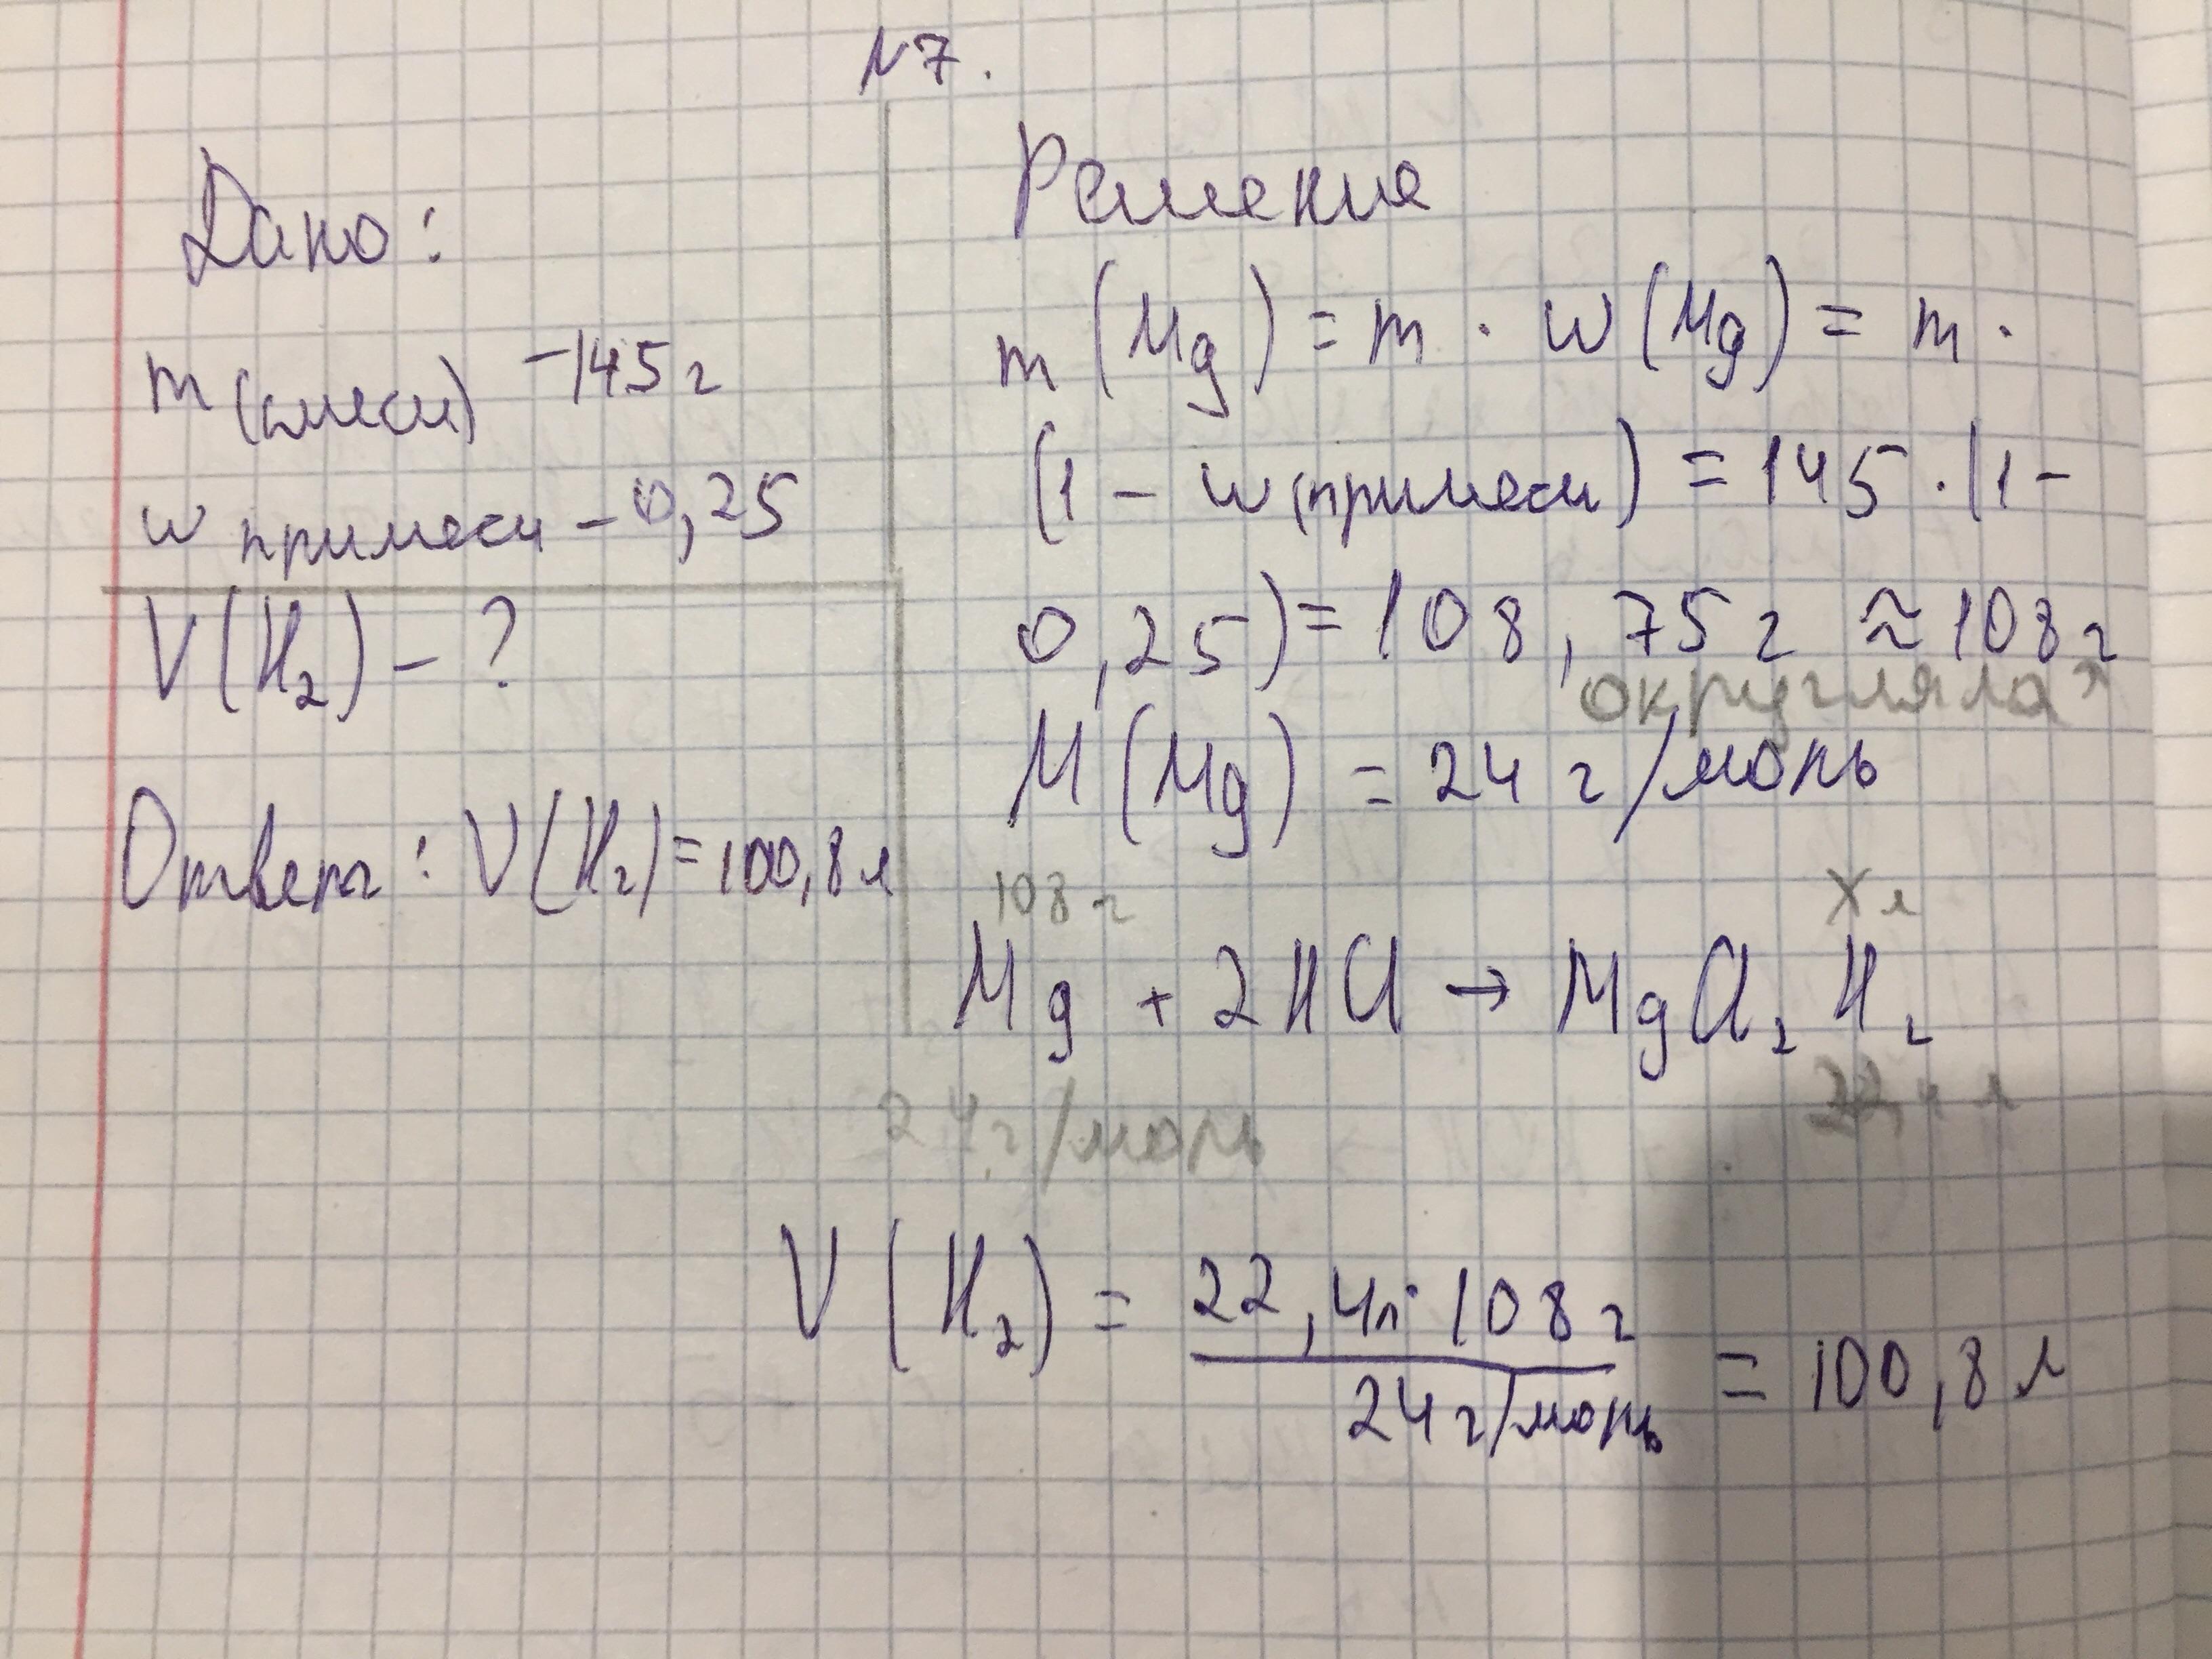 N7.
Дано:
m (смеси) - 145 г
w примеси - 0,25
V(H₂) - ?
Ответ: V(H₂) = 100,8 л
Решение
m (Mg) = m · w (Mg) = m ·
(1 - w (примеси) = 145 · (1 -
0,25) = 108,75 г ≈ 108 г
округляла
M (Mg) = 24 г/моль
108 г X л
Mg + 2HCl → MgCl₂ H₂
24 г/моль 22,4 л
V (H₂) = 22,4л · 108 г / 24 г/моль = 100,8 л